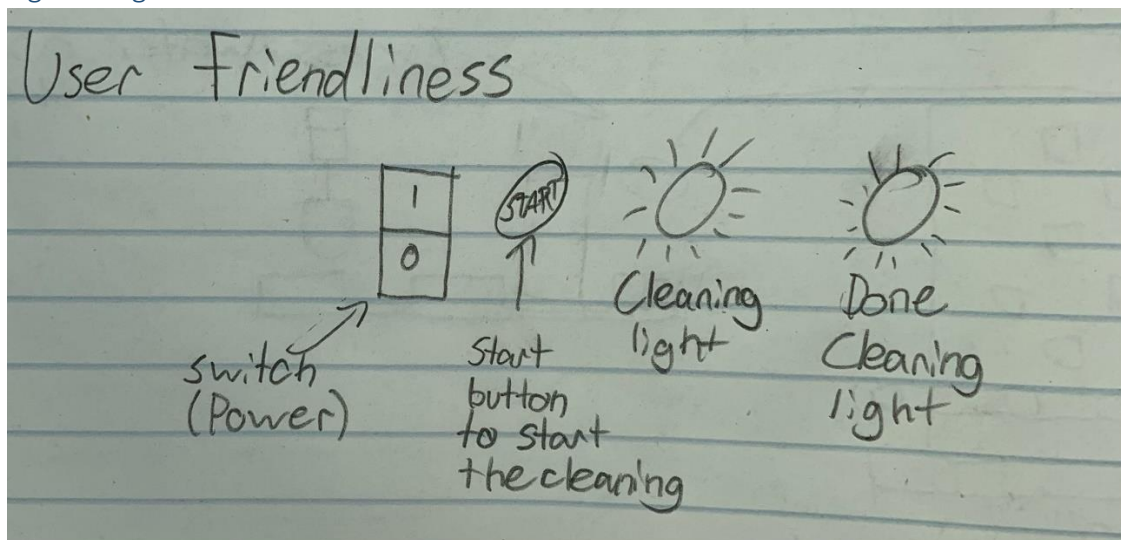 User Friendliness
1
0
START
switch
(Power)
Start
button
to start
the cleaning
Cleaning
light
Done
Cleaning
light